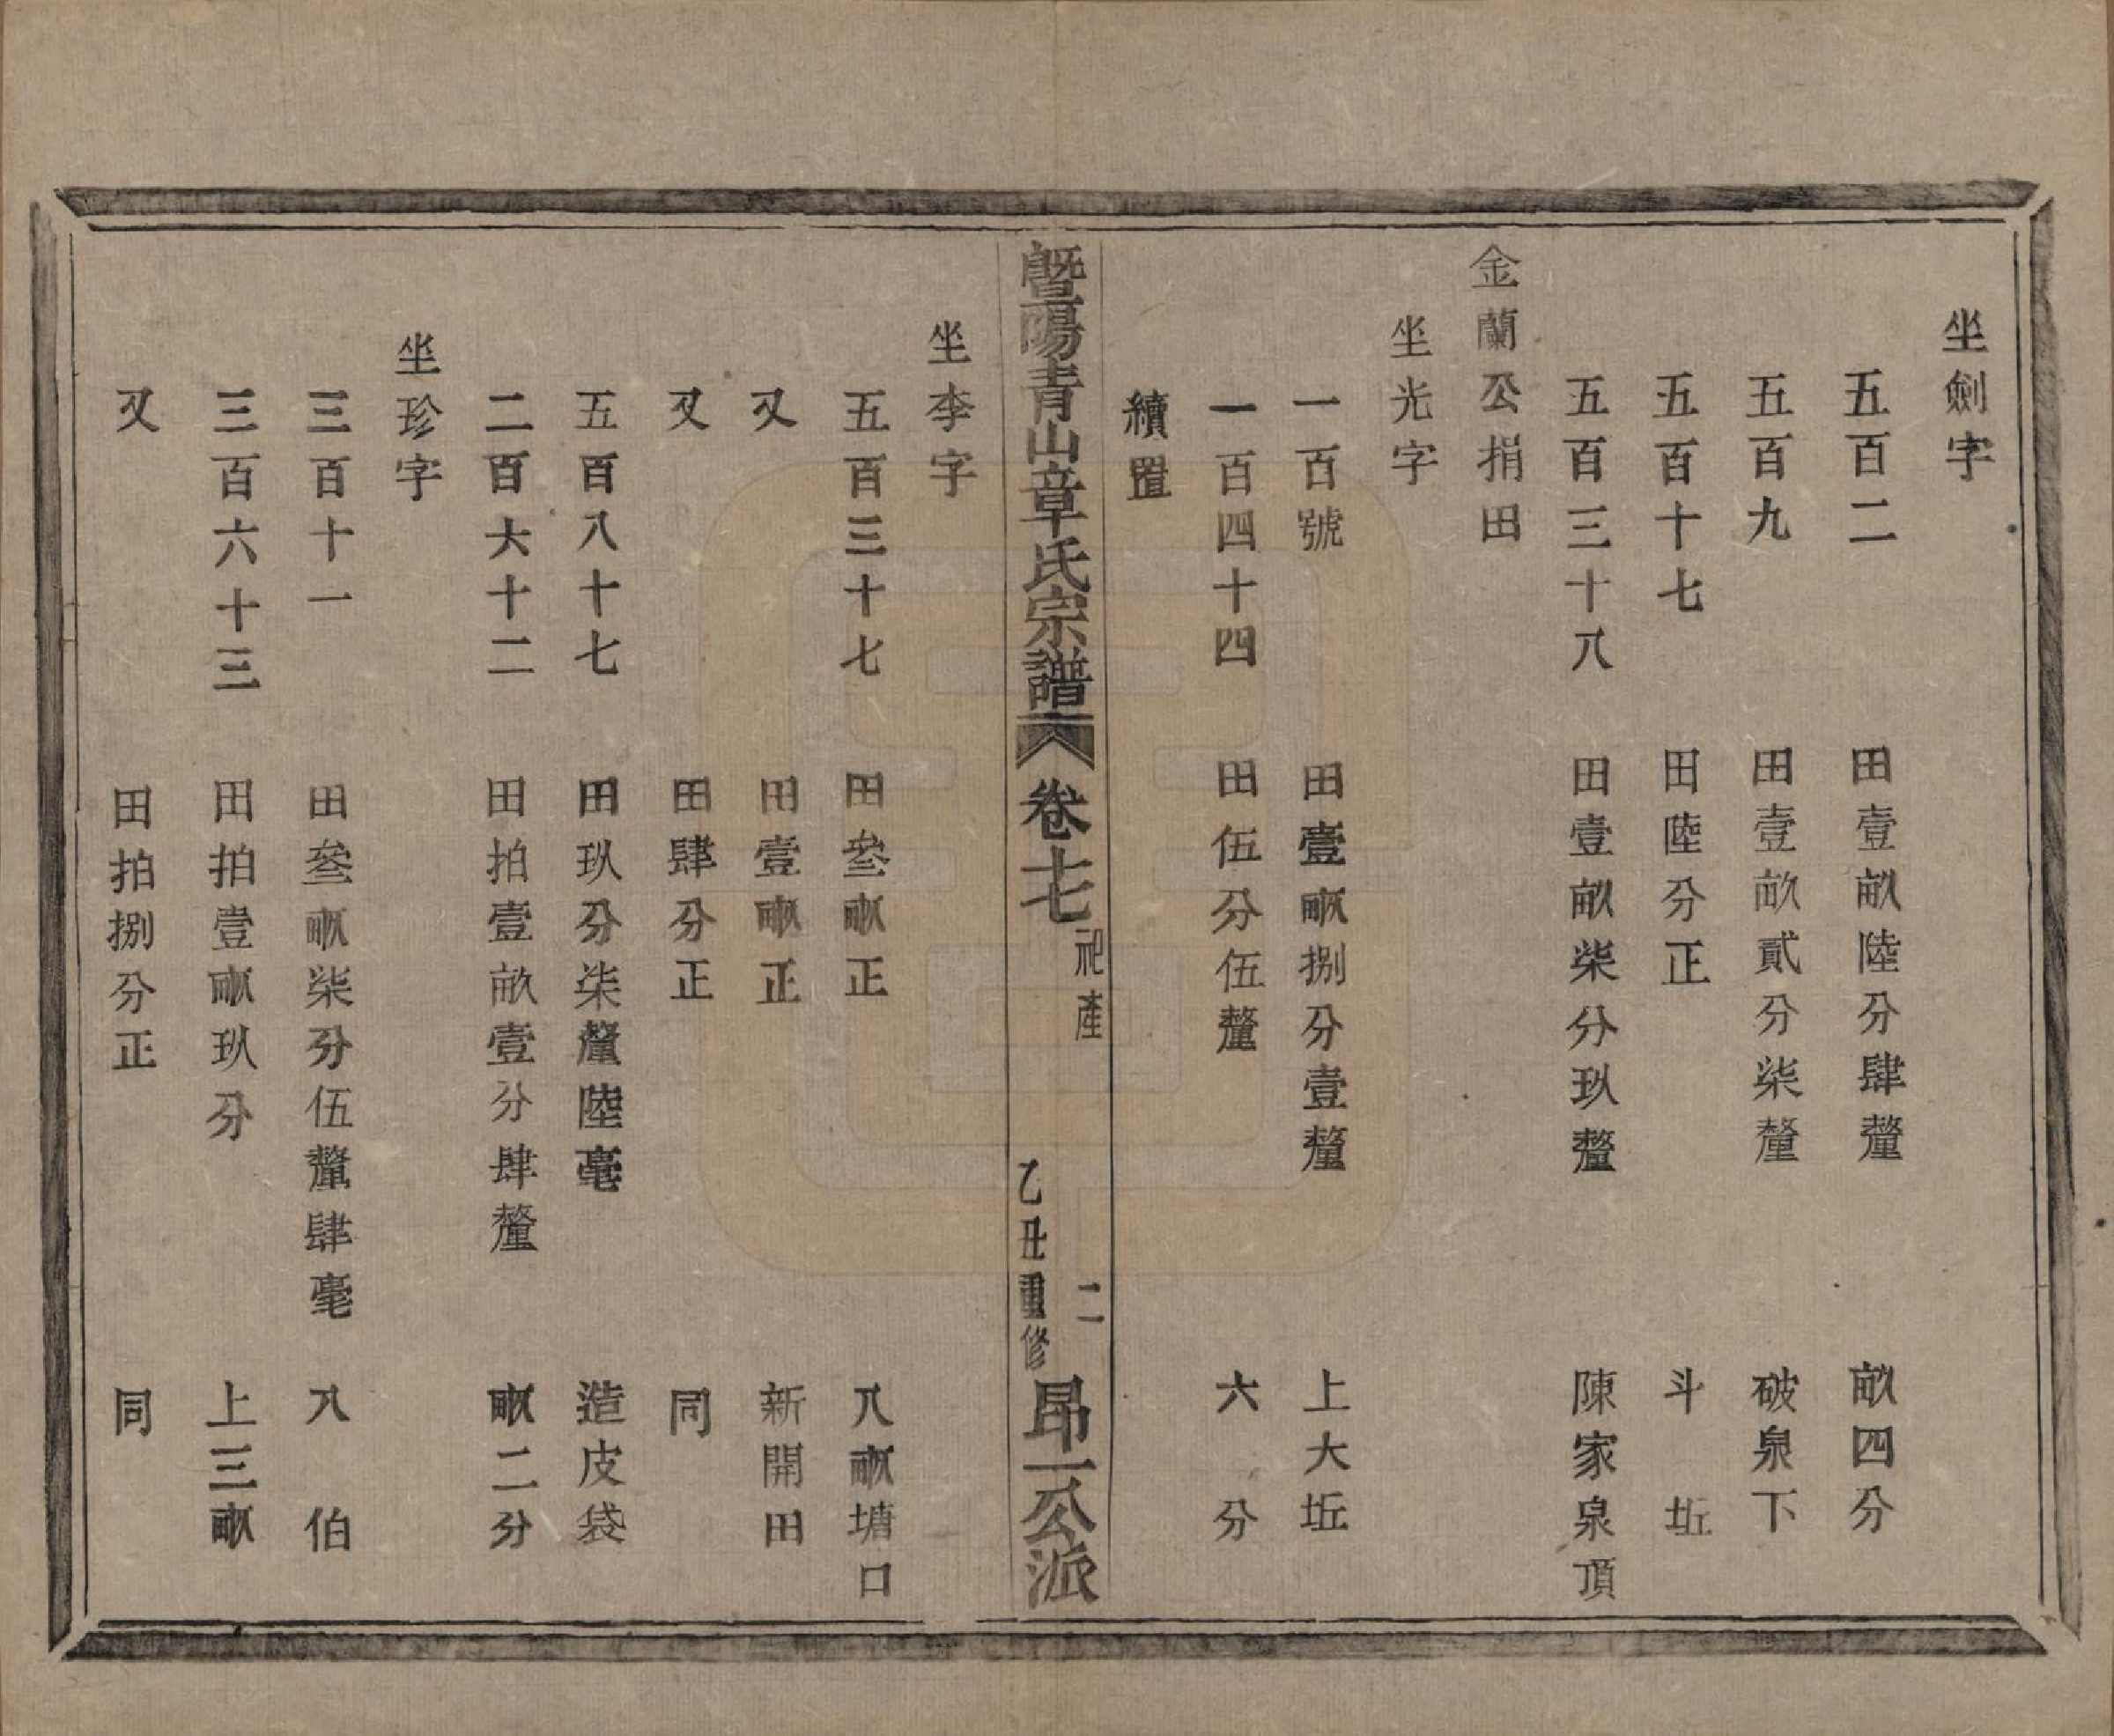 坐劍字
五百二　田壹畝陸分肆釐　畝四分
五百九　田壹畝貳分柒釐　破泉下
五百十七　田陸分正　斗坵
五百三十八　田壹畝柒分玖釐　陳家泉頂
金蘭公捐田
坐光字
一百號　田壹畝捌分壹釐　上大坵
一百四十四　田伍分伍釐　六分
續置
暨陽青山章氏宗譜　卷十七　祀產　二　乙丑重修　昂一公派
坐李字
五百三十七　田叄畝正　八畝塘口
又　田壹畝正　新開田
又　田肆分正　同
五百八十七　田玖分柒釐陸毫　造皮袋
二百六十二　田拍壹畝壹分肆釐　畝二分
坐珍字
三百十一　田叄畝柒分伍釐肆毫　八伯
三百六十三　田拍壹畝玖分　上三畝
又　田拍捌分正　同